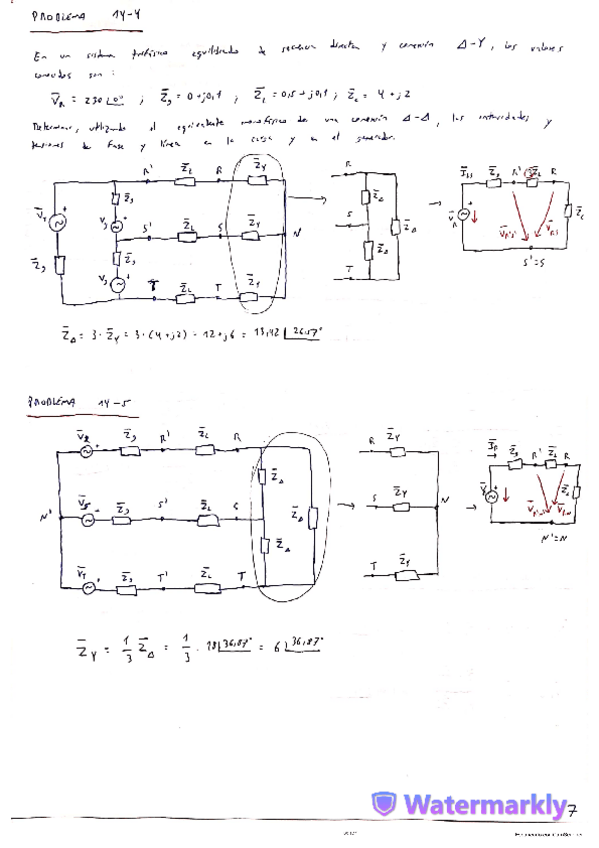 PROBLEMA 14-4
En un sistema trifásico equilibrado de secuencia directa y conexión Δ-Y, los valores
conocidos son :
V̄R = 230 |0° ; Z̄g = 0+j0,1 ; Z̄L = 0,5+j0,1 ; Z̄c = 4+j2
Determinar, utilizando el equivalente monofásico de una conexión Δ-Δ, las intensidades y
tensiones de fase y línea en la carga y en el generador.
R' Z̄L R Z̄Y
S' Z̄L S Z̄Y N
T Z̄L T Z̄Y
Z̄g
Z̄g
R
S
T
Z̄Δ
Z̄Δ
Z̄Δ
Z̄g R' 3Z̄L R
V̄R
S'=S
Z̄Δ = 3·Z̄Y = 3·(4+j2) = 12+j6 = 13,42 |26,57°
PROBLEMA 14-5
V̄R Z̄g R' Z̄L R
N' V̄S Z̄g S' Z̄L S
V̄T Z̄g T' Z̄L T
Z̄Δ
Z̄Δ
Z̄Δ
R Z̄Y
S Z̄Y N
T Z̄Y
Z̄g R' Z̄L R
N'=N
Z̄Y = 1/3 Z̄Δ = 1/3 · 18 |36,87° = 6 |36,87°
Watermarkly
7